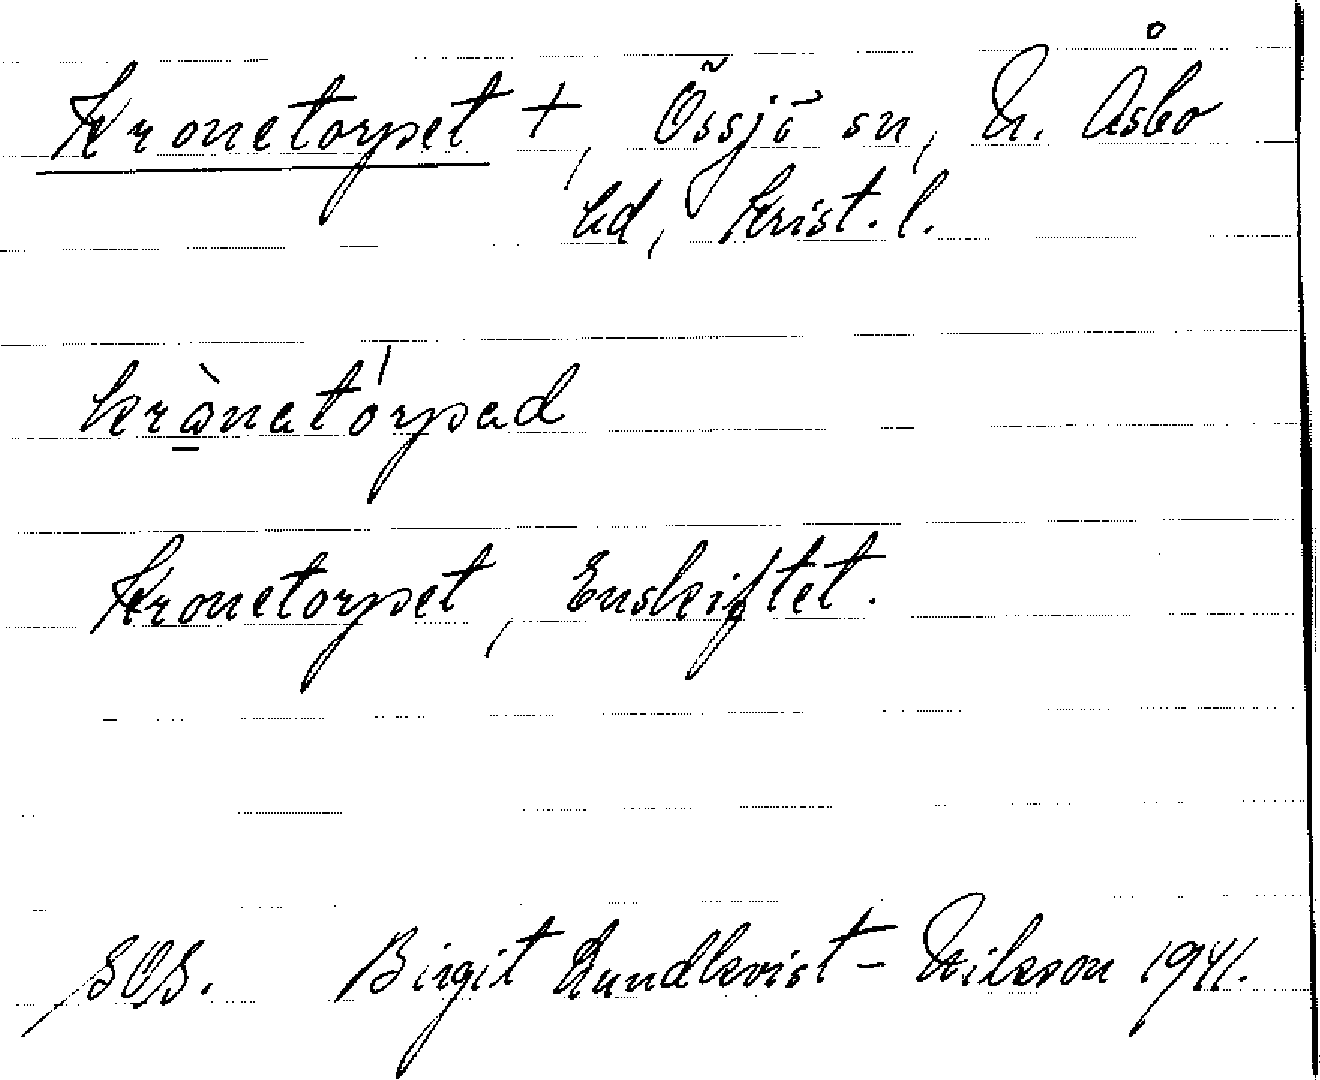 Kronetorpet +, Össjö sn, N. Åsbo
hd, Krist. l.
krònatórpad
Kronetorpet, Enskiftet.
SOS. Birgit Lundkvist - Nilsson 1941.